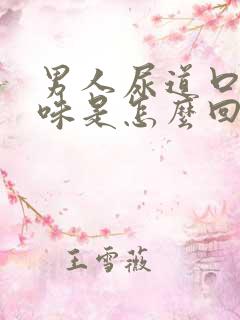 男人尿道口
味是怎麼回
王雪薇